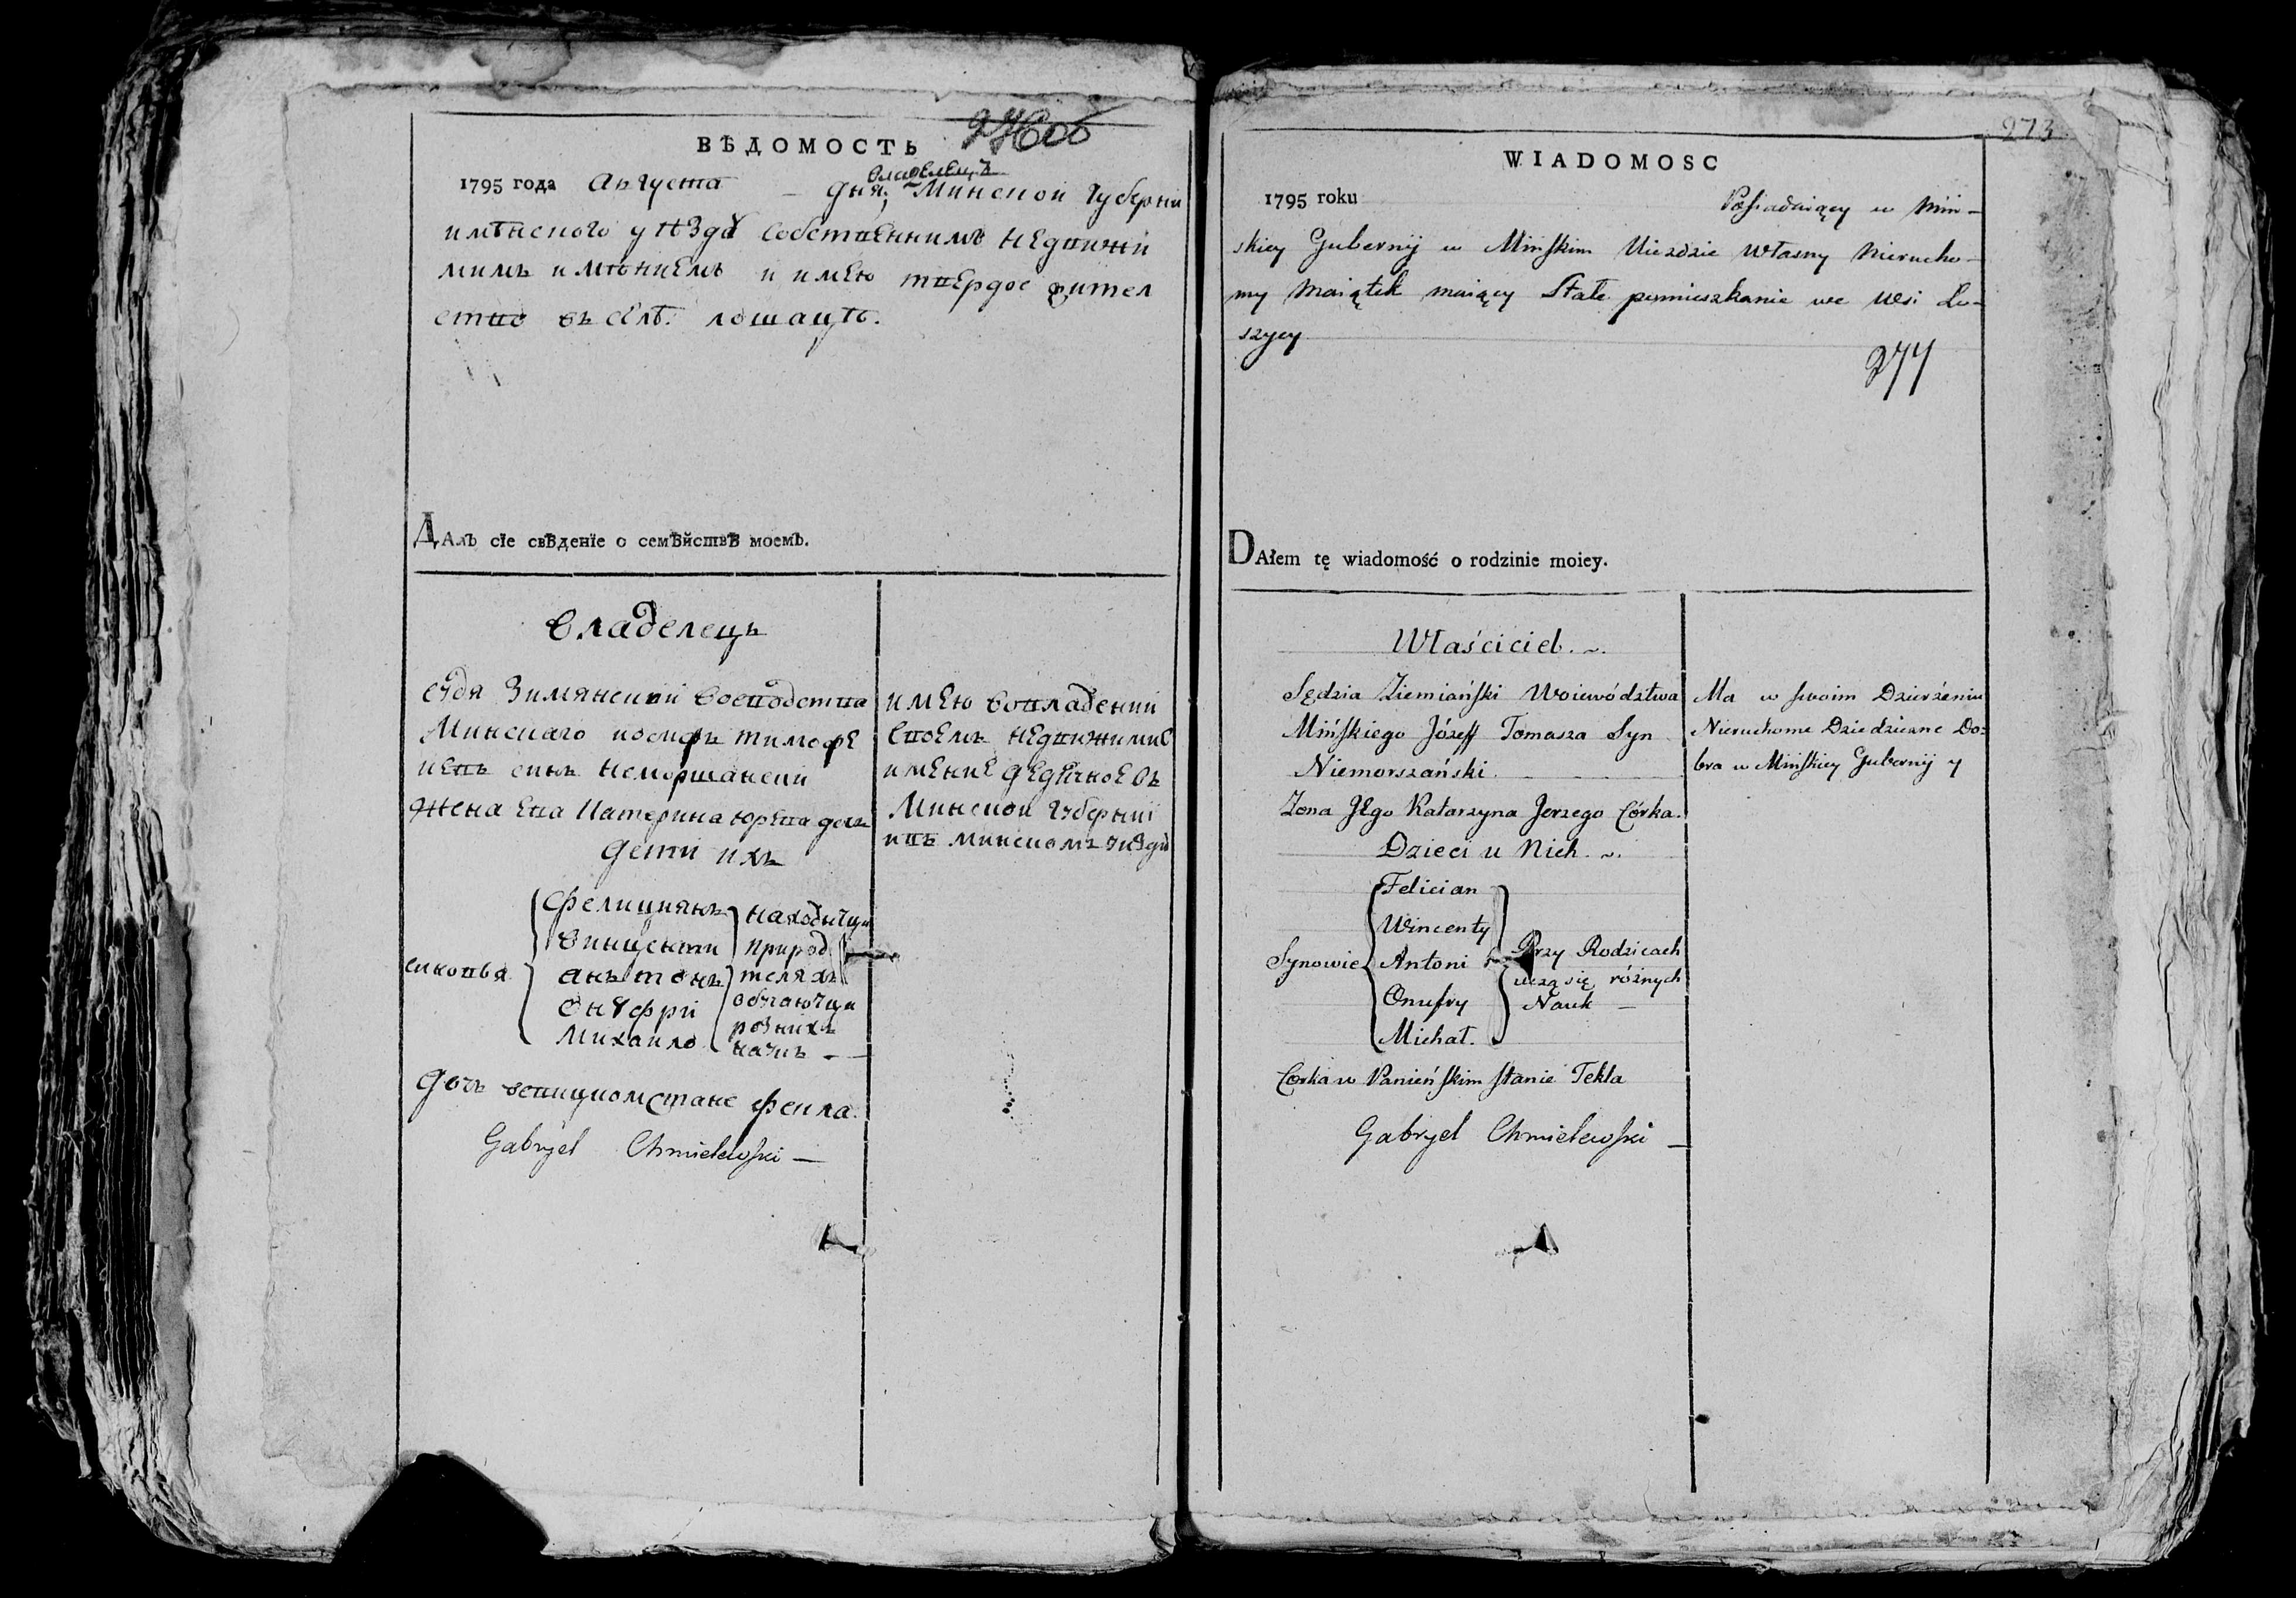 ВѢДОМОСТЬ
владелецъ
1795 года Августа – дня; Минской Губерни
имѣнского уѣзда собственнимъ недвижи
мимъ имѣниемъ и имею твердое жител
ство въ селѣ. лошацѣ.
ДАлъ сїе свѣденїе о семѣйствѣ моемъ.
Владелецъ
судя Зимянский Воеводства
Минскаго иосифъ тимофе
иевъ синъ Неморшански
Жена Ева Катерина юрева дочь
дети ихъ
синовья
Фелициянъ
Винценти
анътонъ
Онуфри
Михаило
находятця
при род
теляхъ
обучаютця
розних
наукъ – –
дочь вевицком стане фекла.
Gabryel Chmielewski —
имею вовладении
своемъ недвижимие
имение дедичное въ
Минской Губернии
ивъ минскомъ уѣзде
273
WIADOMOSC
1795 roku Possiadaiący w Min-
skiey Gubernij w Mińskim Uiezdzie Własny Nierucho-
my Maiątek maiący Stałe pomieszkanie we Wsi Lo-
szycy
274
DAłem tę wiadomość o rodzinie moiey.
Właściciel. ~.
Sędzia Ziemiański Woiewództwa
Mińskiego Józeff Tomasza Syn
Niemorszański.
Zona JEgo Katarzyna Jerzego Córka.
Dzieci u Nich. ~.
Synowie
Felician
Wincenty
Antoni
Onufry
Michał.
Przy Rodzicach
uczą się różnych
Nauk —
Corka w Panieńskim stanie Tekla
Gabryel Chmielewski —
Ma w swoim Dzierżeniu
Nieruchome Dziedziczne Do=
bra w Mińskiey Gubernij y